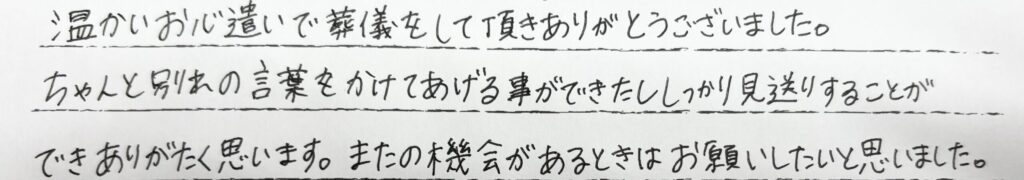 温かいお心遣いで葬儀をして頂きありがとうございました。
ちゃんと別れの言葉をかけてあげる事ができたししっかり見送りすることが
できありがたく思います。またの機会があるときはお願いしたいと思いました。